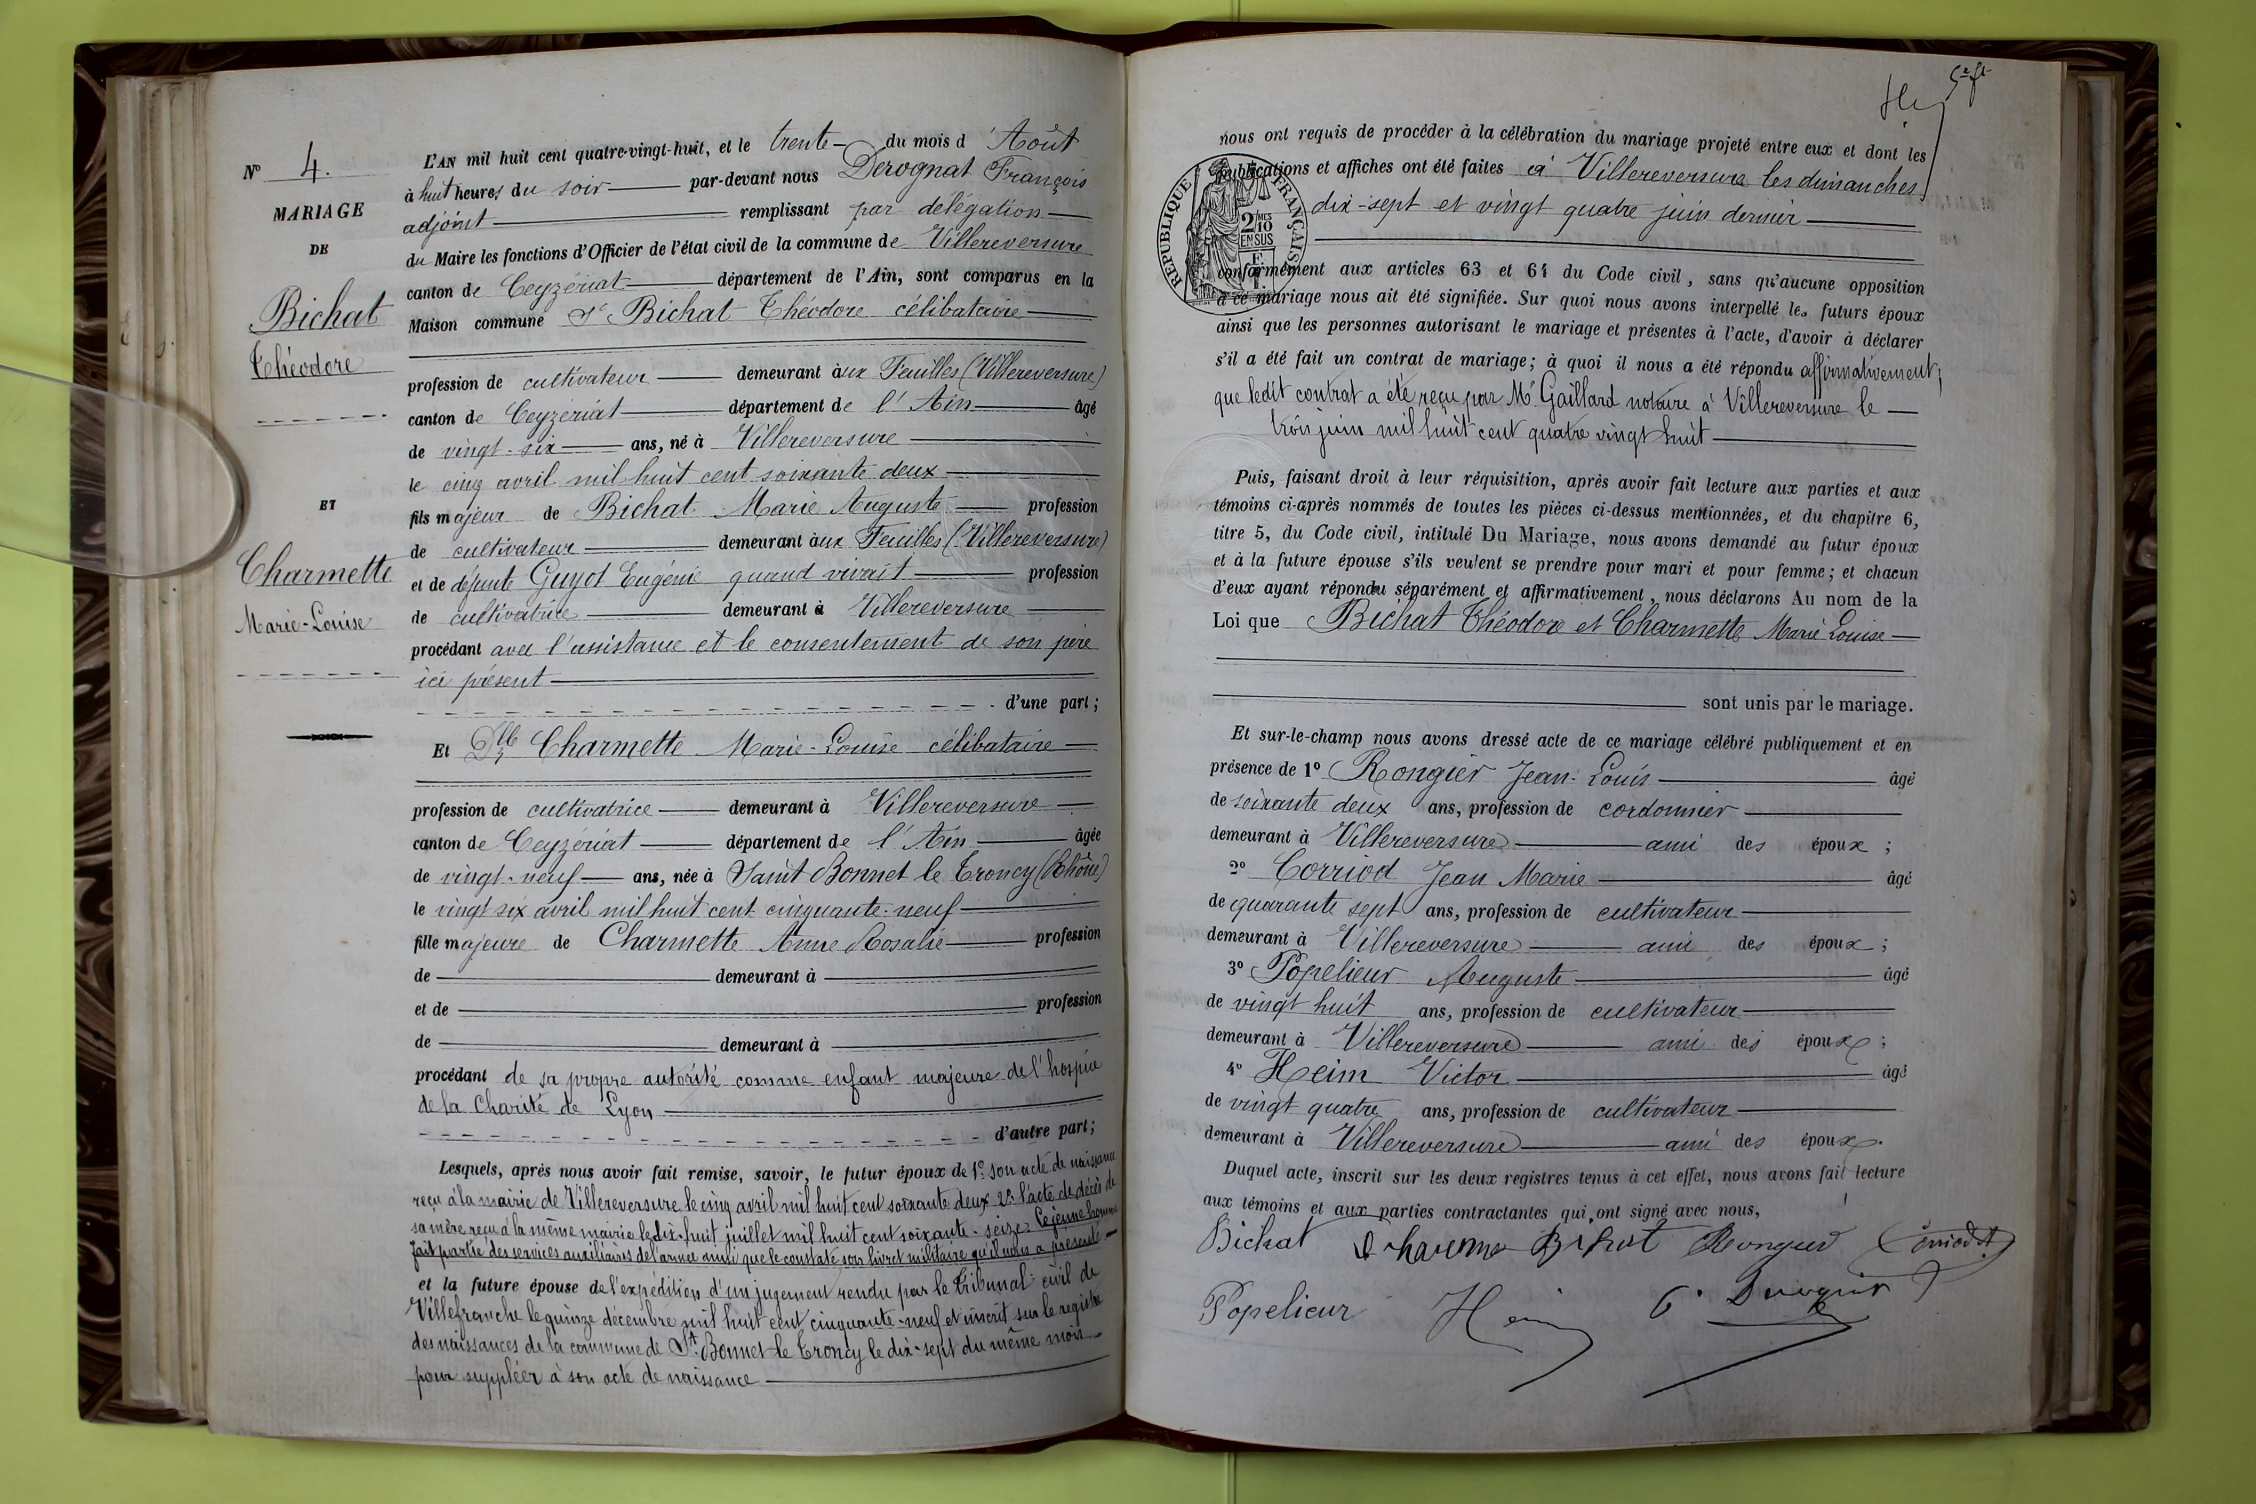 N° 4.
MARIAGE
DE
Bichat
Théodore
ET
Charmette
Marie-Louise
L'AN mil huit cent quatre-vingt-huit, et le trente du mois d'Août
à huit heures du soir par-devant nous Derognat François
adjoint remplissant par délégation
du Maire les fonctions d'Officier de l'état civil de la commune de Villereversure
canton de Ceyzériat département de l'Ain, sont comparus en la
Maison commune Sr Bichat Théodore célibataire
profession de cultivateur demeurant aux Feuilles (Villereversure)
canton de Ceyzériat département de l'Ain âgé
de vingt-six ans, né à Villereversure
le cinq avril mil huit cent soixante deux
fils majeur de Bichat Marie Auguste profession
de cultivateur demeurant aux Feuilles (Villereversure)
et de défunte Guyot Eugénie quand vivait profession
de cultivatrice demeurant à Villereversure
procédant avec l'assistance et le consentement de son père
ici présent
d'une part ;
Et Dlle Charmette Marie-Louise célibataire
profession de cultivatrice demeurant à Villereversure
canton de Ceyzériat département de l'Ain âgée
de vingt-neuf ans, née à Saint Bonnet le Troncy (Rhône)
le vingt six avril mil huit cent cinquante-neuf
fille majeure de Charmette Anne Rosalie profession
de demeurant à
et de profession
de demeurant à
procédant de sa propre autorité comme enfant majeure de l'hospice
de la Charité de Lyon
d'autre part ;
Lesquels, après nous avoir fait remise, savoir, le futur époux de 1° son acte de naissance
reçu à la mairie de Villereversure le cinq avril mil huit cent soixante deux 2° l'acte de décès de
sa mère reçu à la même mairie le dix-huit juillet mil huit cent soixante-seize Ce jeune homme
fait partie des services auxiliaires de l'armée ainsi que le constate son livret militaire qu'il nous a présenté
et la future épouse de l'expédition d'un jugement rendu par le Tribunal civil de
Villefranche le quinze décembre mil huit cent cinquante-neuf et inscrit sur le registre
des naissances de la commune de St Bonnet-le Troncy le dix-sept du même mois
pour suppléer à son acte de naissance
nous ont requis de procéder à la célébration du mariage projeté entre eux et dont les
publications et affiches ont été faites à Villereversure les dimanches
dix-sept et vingt quatre juin dernier
RÉPUBLIQUE FRANÇAISE
2 MES
10
EN SUS
conformément aux articles 63 et 64 du Code civil, sans qu'aucune opposition
à ce mariage nous ait été signifiée. Sur quoi nous avons interpellé les futurs époux
ainsi que les personnes autorisant le mariage et présentes à l'acte, d'avoir à déclarer
s'il a été fait un contrat de mariage ; à quoi il nous a été répondu affirmativement,
que ledit contrat a été reçu par Me Gaillard notaire à Villereversure le
trois juin mil huit cent quatre vingt huit
Puis, faisant droit à leur réquisition, après avoir fait lecture aux parties et aux
témoins ci-après nommés de toutes les pièces ci-dessus mentionnées, et du chapitre 6,
titre 5, du Code civil, intitulé Du Mariage, nous avons demandé au futur époux
et à la future épouse s'ils veulent se prendre pour mari et pour femme ; et chacun
d'eux ayant répondu séparément et affirmativement, nous déclarons Au nom de la
Loi que Bichat Théodore et Charmette Marie Louise
sont unis par le mariage.
Et sur-le-champ nous avons dressé acte de ce mariage célébré publiquement et en
présence de 1° Rongier Jean-Louis âgé
de soixante deux ans, profession de cordonnier
demeurant à Villereversure ami des époux ;
2° Corriod Jean Marie âgé
de quarante sept ans, profession de cultivateur
demeurant à Villereversure ami des époux ;
3° Popelieur Auguste âgé
de vingt huit ans, profession de cultivateur
demeurant à Villereversure ami des époux ;
4° Heim Victor âgé
de vingt quatre ans, profession de cultivateur
demeurant à Villereversure ami des époux.
Duquel acte, inscrit sur les deux registres tenus à cet effet, nous avons fait lecture
aux témoins et aux parties contractantes qui ont signé avec nous,
Bichat Bichat Rongier Corriod
Popelieur Heim